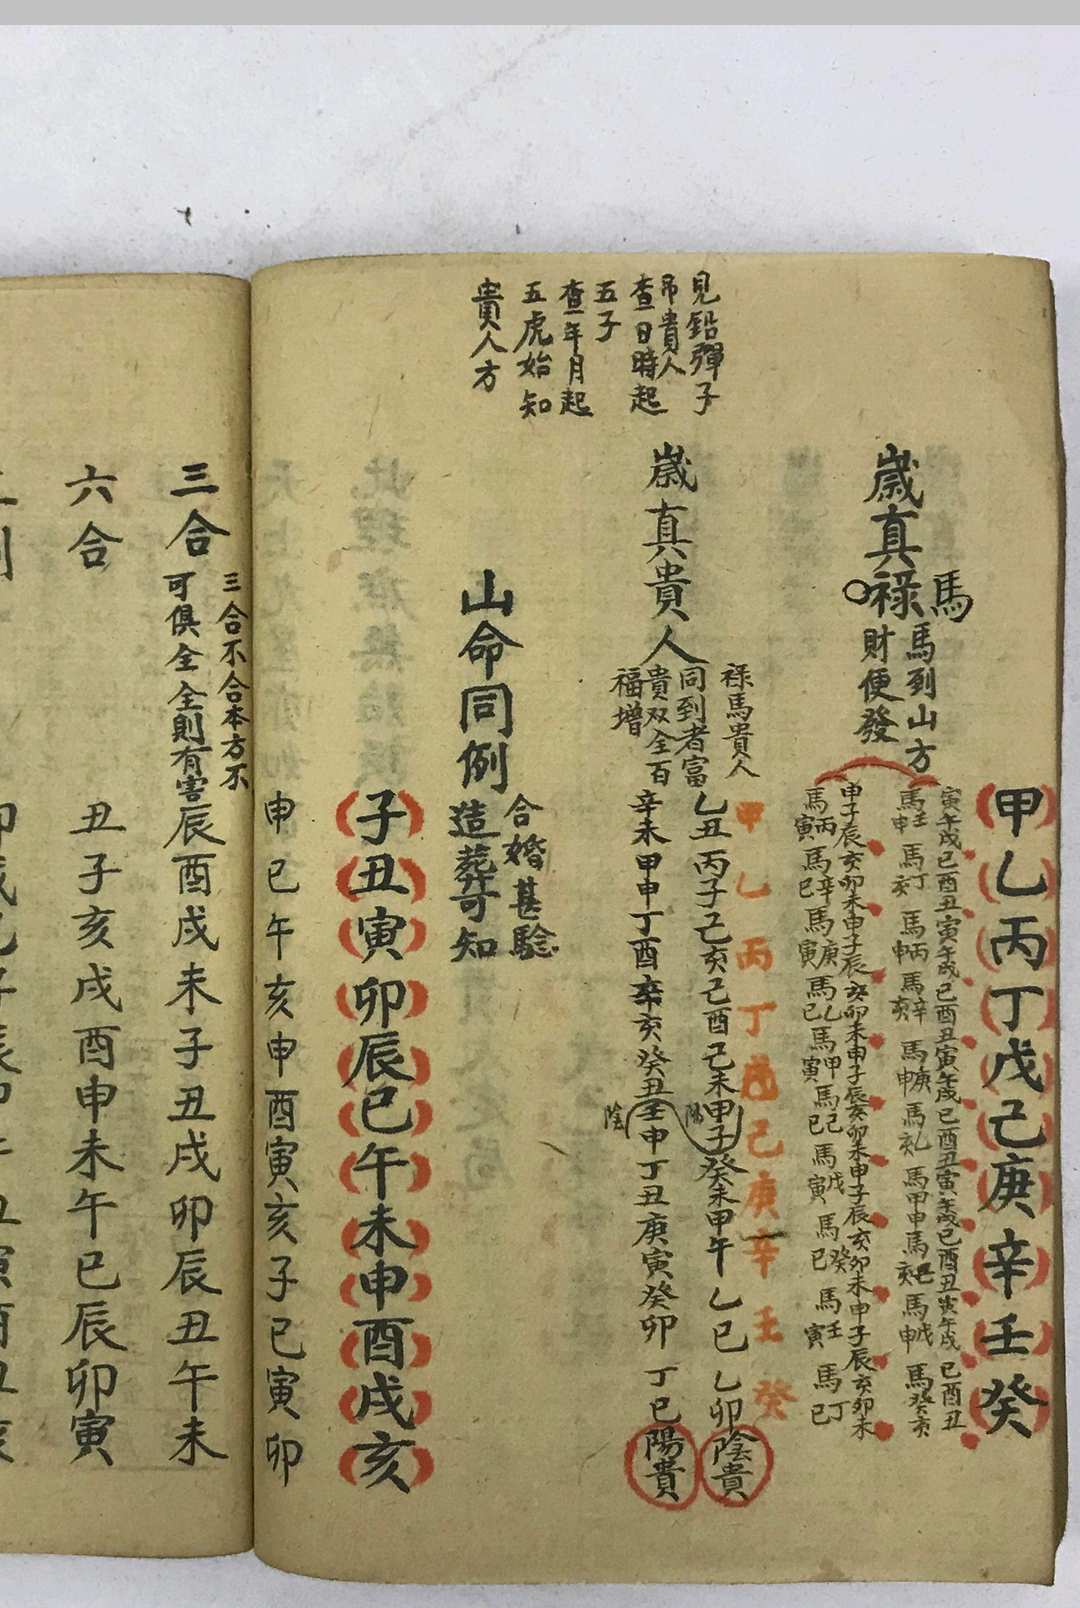 見鉛彈子
吊貴人
查日時起
五子
查年月起
五虎始知
貴人方
甲乙丙丁戊己庚辛壬癸
歲真祿馬
馬到山方
財便發
寅午戌巳酉丑寅午戌巳酉丑寅午戌巳酉丑寅午戌巳酉丑寅午戌巳酉丑
馬壬申馬丁亥馬丙申馬辛亥馬庚申馬乙亥馬甲申馬己亥馬戊申馬癸亥
申子辰亥卯未申子辰亥卯未申子辰亥卯未申子辰亥卯未申子辰亥卯未
馬丙寅馬辛巳馬庚寅馬乙巳馬甲寅馬己巳馬戊寅馬癸巳馬壬寅馬丁巳
甲乙丙丁戊己庚辛壬癸
歲真貴人
祿馬貴人
同到者富
貴双全百
福增
乙丑丙子己亥己酉己未甲子癸未甲午乙巳乙卯陰貴
陽
辛未甲申丁酉辛亥癸丑壬申丁丑庚寅癸卯丁巳陽貴
陰
山命同例
合婚甚驗
造葬可知
子丑寅卯辰巳午未申酉戌亥
申巳午亥申酉寅亥子巳寅卯
三合
三合不合本方不
可俱全全則有害
辰酉戌未子丑戌卯辰丑午未
六合
丑子亥戌酉申未午巳辰卯寅